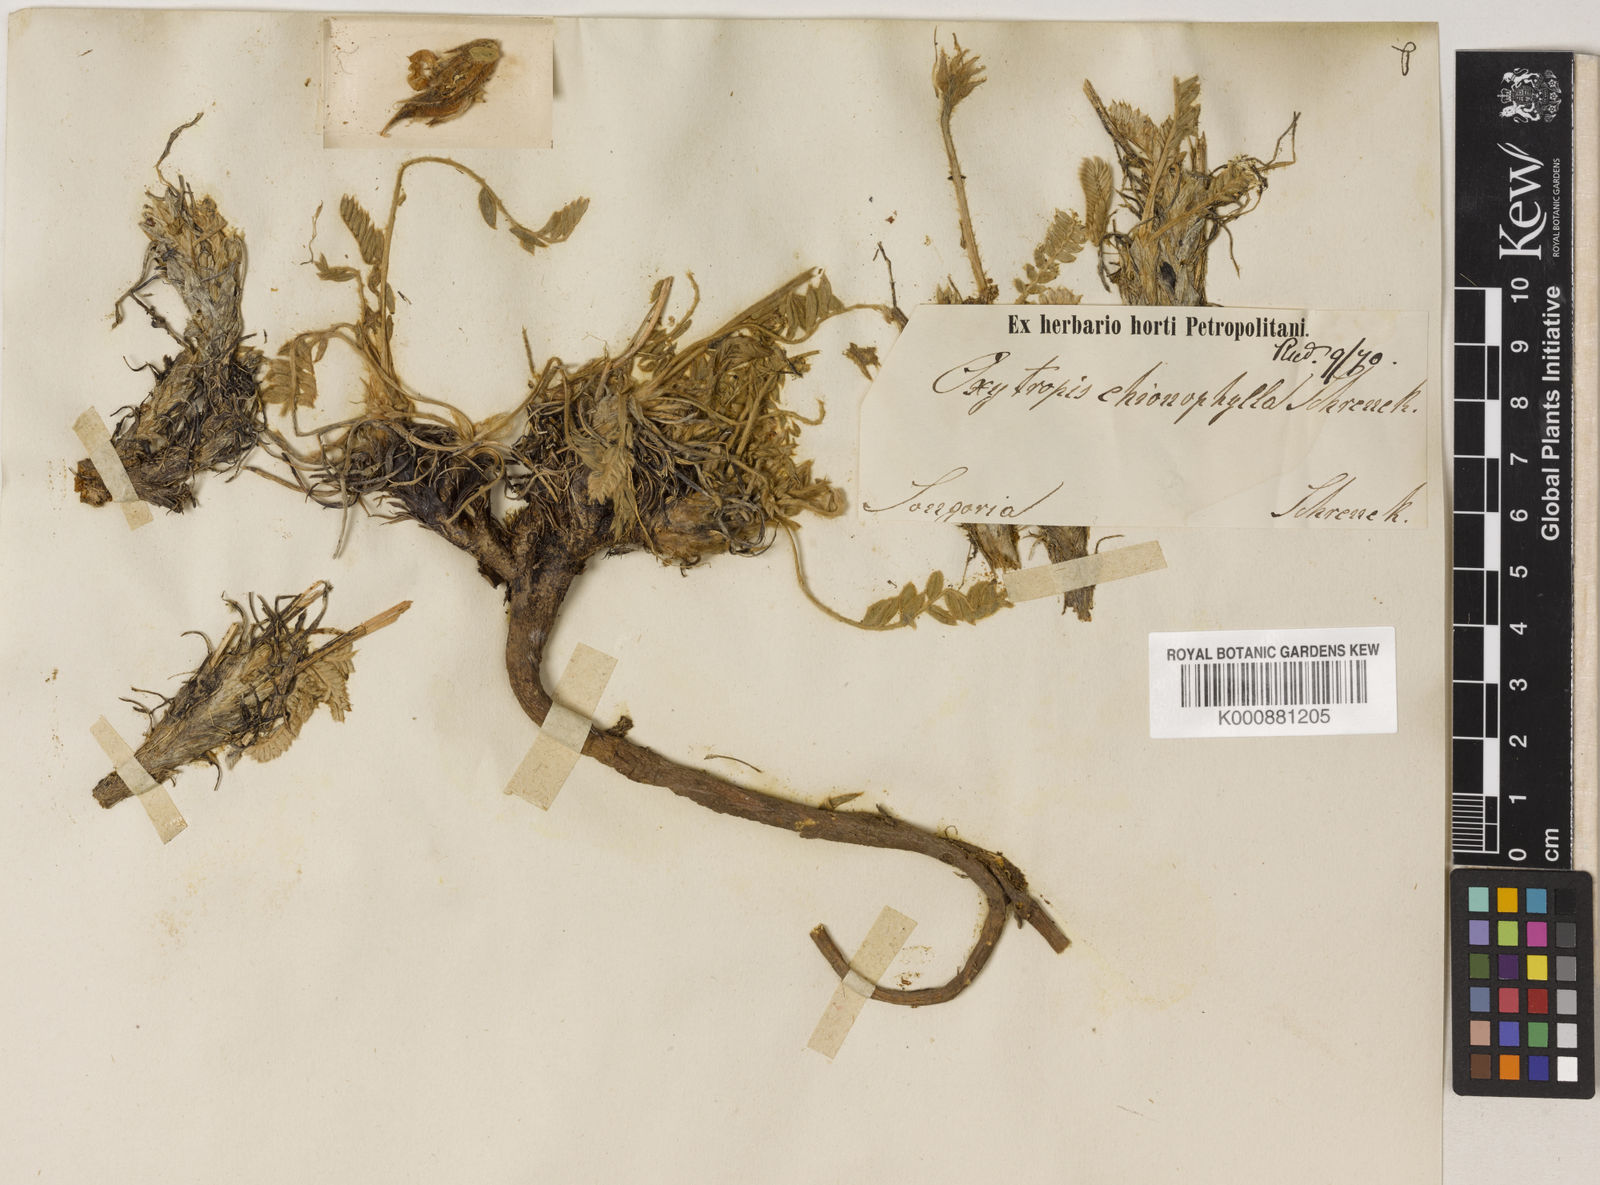 Ex herbario horti Petropolitani.
Recd. 9/70.
Oxytropis chionophylla Schrenck.
Songoria
Schrenck.
ROYAL BOTANIC GARDENS KEW
K000881205
Kew
ROYAL BOTANIC GARDENS
Global Plants Initiative
0 1 2 3 4 5 6 7 8 9 10
cm